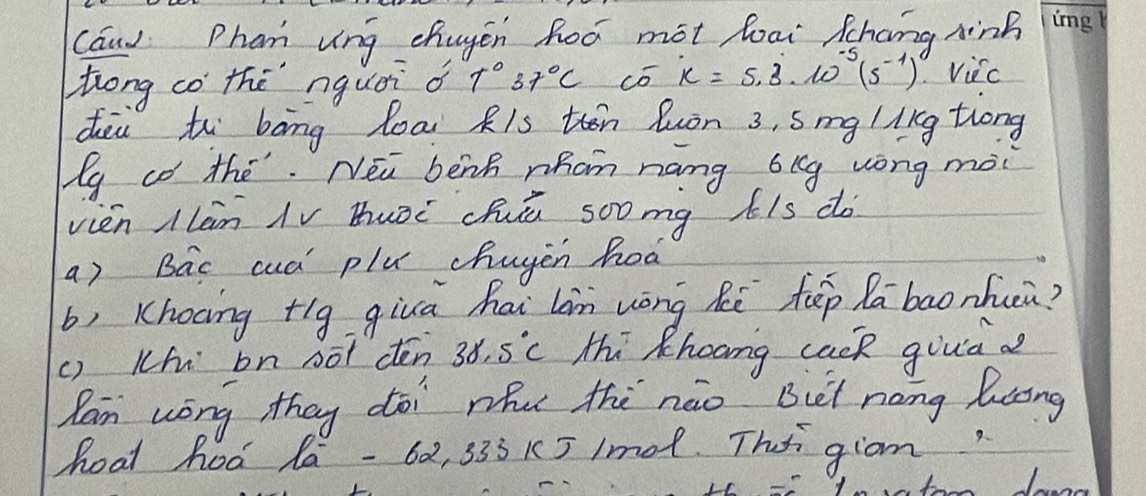 Câu: Phản ứng chuyển hoá một loại kháng sinh
ứng
trong cơ thể người ở t° 37°C có k = 5,3.10⁻⁵(s⁻¹). Việc
điều trị bằng loại k/s trên luôn 3,5mg/1kg trong
lg cơ thể. Nếu bệnh nhân nặng 6kg uống mỗi
viên 1 lần 1v thuốc chứa 500mg k/s đó
a) Bậc của plư chuyển hoá
b) Khoảng t/g giữa hai lần uống kế tiếp là bao nhiêu?
c) Khi bn sốt đến 38,5°C thì khoảng cách giữa 2
lần uống thay đổi như thế nào Biết năng lượng
hoạt hoá là - 62,333 KJ/mol. Thời gian ?